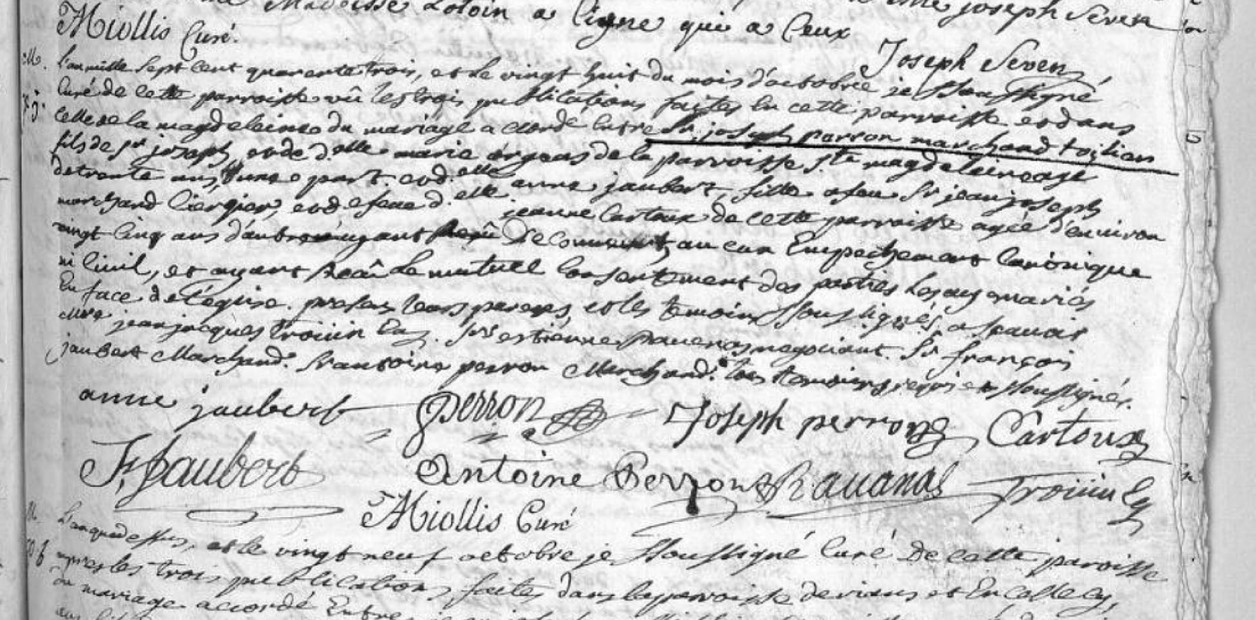 Madelsse Lotoin a signé qui a Ceux joseph Seven
Miollis Curé. Joseph Seven
L'an mille Sept Cent quarante trois, et le vingt huit du mois d'octobre je Soussigné
Curé de cette parroisse vû les trois publications faites en cette parroisse et dans
Celle de la magdeleine du mariage accordé Entre Sr. joseph perron marchand toilier
fils de Sr joseph, et de dlle marie orgeas de la parroisse Ste magdeleine agé
de trente ans, d'une part et dlle anne jaubert, fille a feu Sr jean joseph
marchand Cirgier, et de feue dlle jeanne Cartoux de cette parroisse agée d'environ
vingt Cinq ans d'autre n'ayant aucun Empechement Canonique
ni Civil, et ayant Reçû Le mutuel Consentement des parties Les ay mariés
En face de l'église. presens leurs parens, et les temoins Soussignés, a scavoir
Mre jean jacques troüin Ey. Sr estienne Ravanas negociant. Sr françois
jaubert Marchand. Sr antoine perron Marchand. tous temoins requis et Soussignés.
anne jaubert perron Joseph perron Cartoux
F. Jaubert Antoine Perron Ravanas Troüin Ey
Miollis Curé
L'an que dessus, et le vingt neuf octobre je Soussigné Curé De cette paroisse
apres les trois publications faites dans la parroisse de rians et En Celle Cy,
du mariage accordé Entre